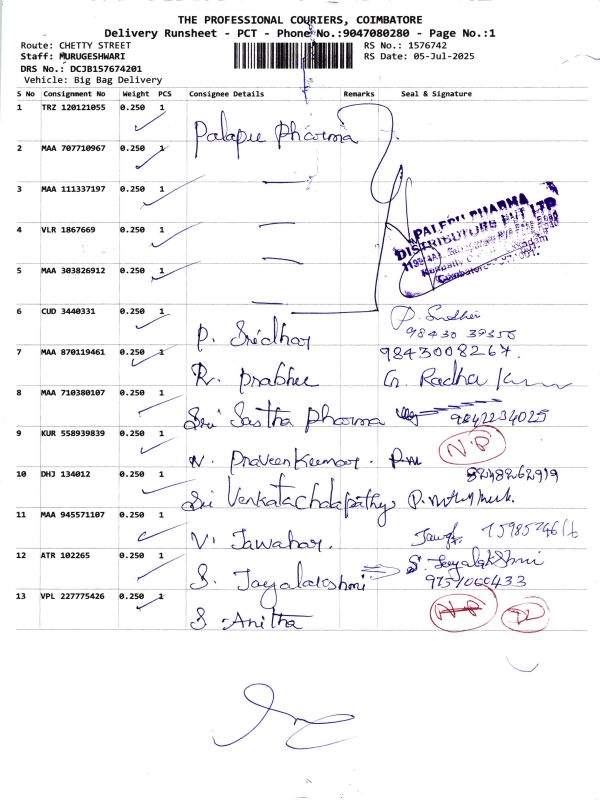 THE PROFESSIONAL COURIERS, COIMBATORE
Delivery Runsheet - PCT - Phone No.:9047080280 - Page No.:1
Route: CHETTY STREET
RS No.: 1576742
Staff: MURUGESHWARI
RS Date: 05-Jul-2025
DRS No.: DCJB157674201
Vehicle: Big Bag Delivery
S No Consignment No Weight PCS Consignee Details Remarks Seal & Signature
1 TRZ 120121055 0.250 1 Palapee Pharma
2 MAA 707710967 0.250 1
3 MAA 111337197 0.250 1
4 VLR 1867669 0.250 1
PALEPU PHARMA
DISTRIBUTORS PVT LTD
5 MAA 303826912 0.250 1
6 CUD 3440331 0.250 1 P. Sridhar
98430 39356
7 MAA 870119461 0.250 1 R. Prabhu 9843008267.
G. Radha
8 MAA 710380107 0.250 1 Sri Sastha Pharma 9842234025
9 KUR 558939839 0.250 1 N. Praveenkumar. N.P
10 DHJ 134012 0.250 1 Sri Venkatachalapathy 8248262919
11 MAA 945571107 0.250 1 V. Jawahar.
12 ATR 102265 0.250 1 S. Jayalakshmi S. Jayalakshmi
9751060433
13 VPL 227775426 0.250 1 S. Anitha N.P